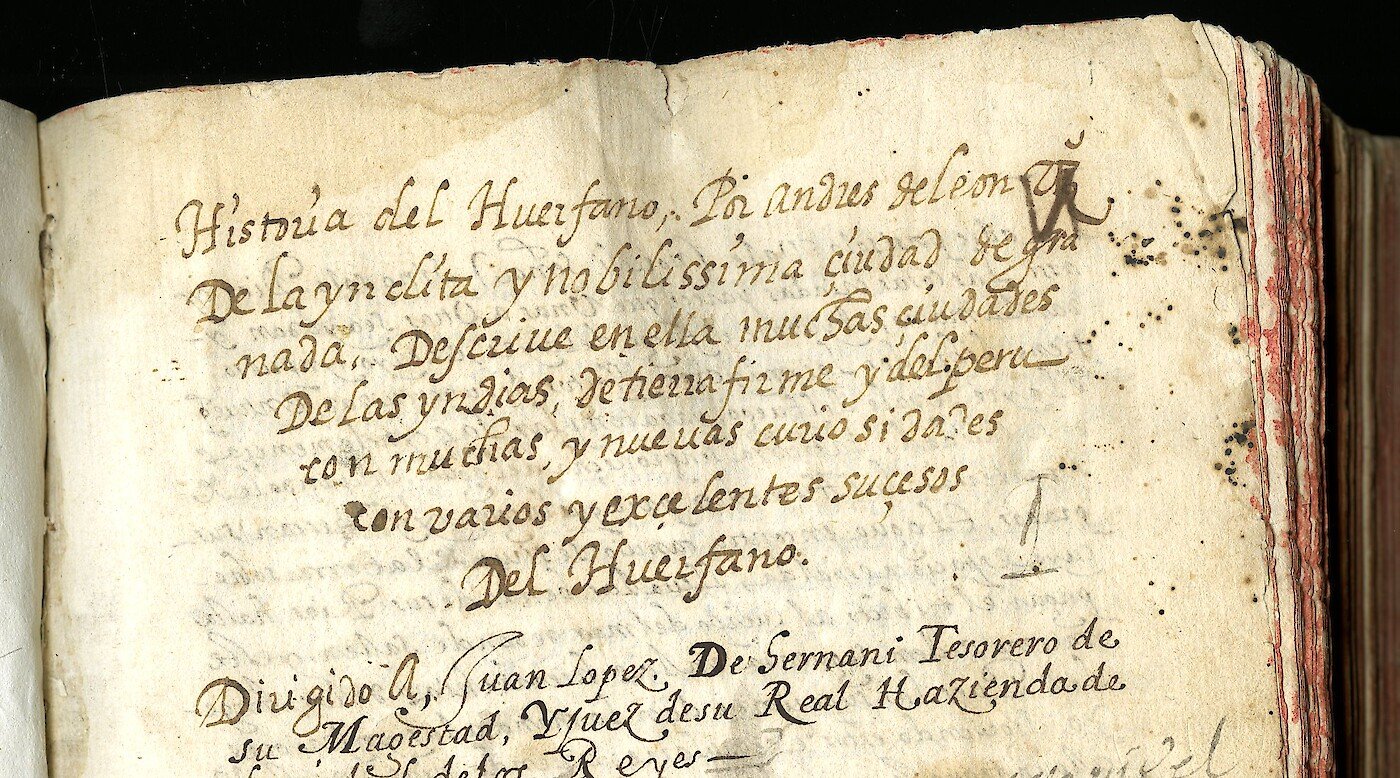 Historia del Huerfano, Por Andres de leon
De la ynclita y nobilissima çiudad de gra
nada. Descrive en ella muchas çiudades
De las yndias, de tierra firme y del peru
con muchas, y nuevas curiosidades
con varios y exçelentes suçesos
Del Huerfano.
Dirigido A, Juan Lopez. De hernani Tesorero de
su Magestad, Y Juez de su Real Hazienda de
de los Reyes